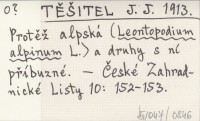 o? TĚŠITEL J. J. 1913.
Protěž alpská (Leontopodium
alpinum L.) a druhy s ní
příbuzné. – České Zahrad-
nické Listy 10: 152-153.
B/047/0846